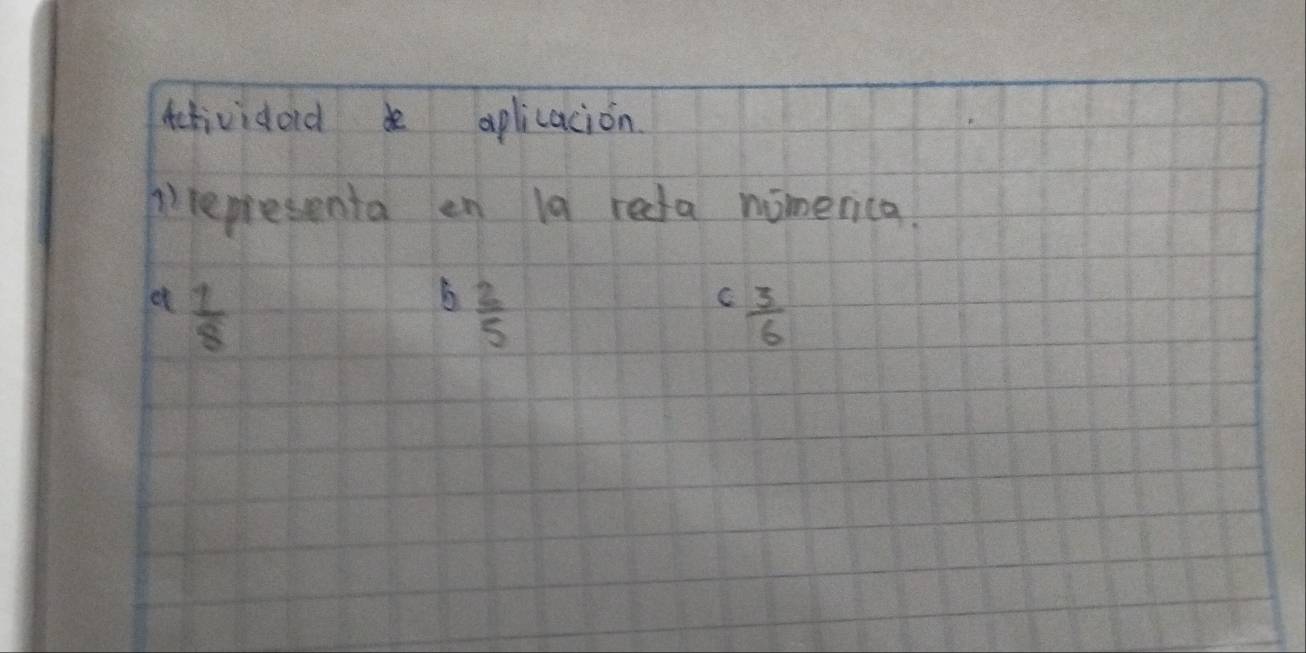 Actividad de aplicación.
1) representa en la recta númerica.
a 1/8 b 2/5 c 3/6